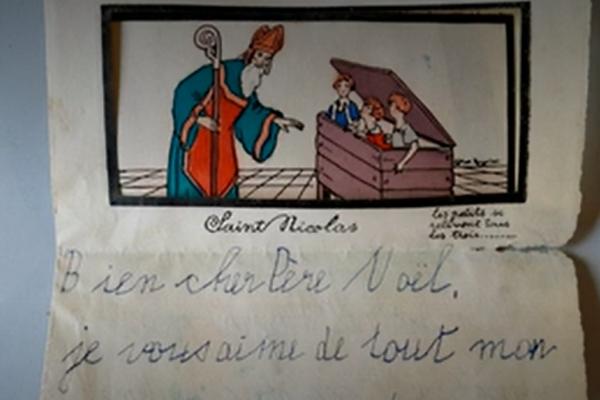 Saint Nicolas
les petits se
relèvent tous
les trois........
Bien cher Père Noël,
je vous aime de tout mon